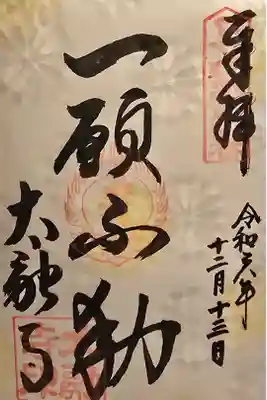 奉拝
令和六年
十二月十三日
一願不動
太融寺